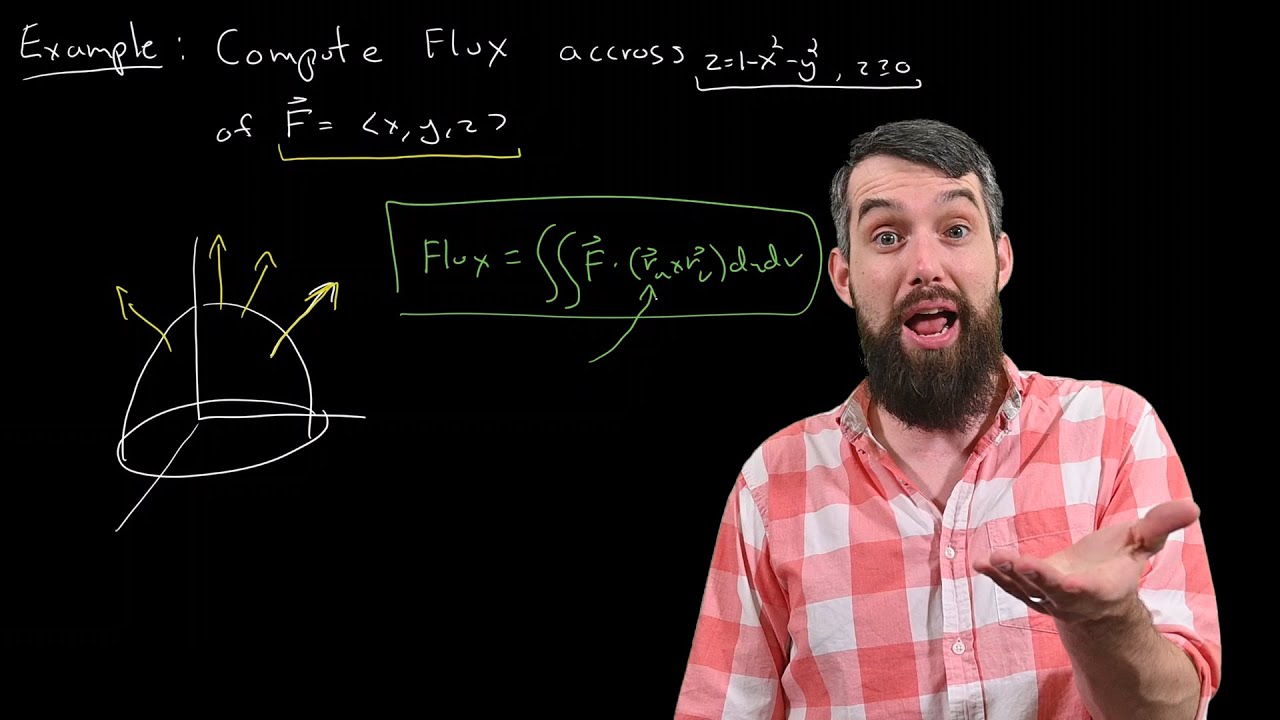 Example: Compute Flux accross z=1-x²-y², z≥0
of F⃗ = <x, y, z>
Flux = ∬ F⃗ · (r⃗ᵤ × r⃗ᵥ) du dv